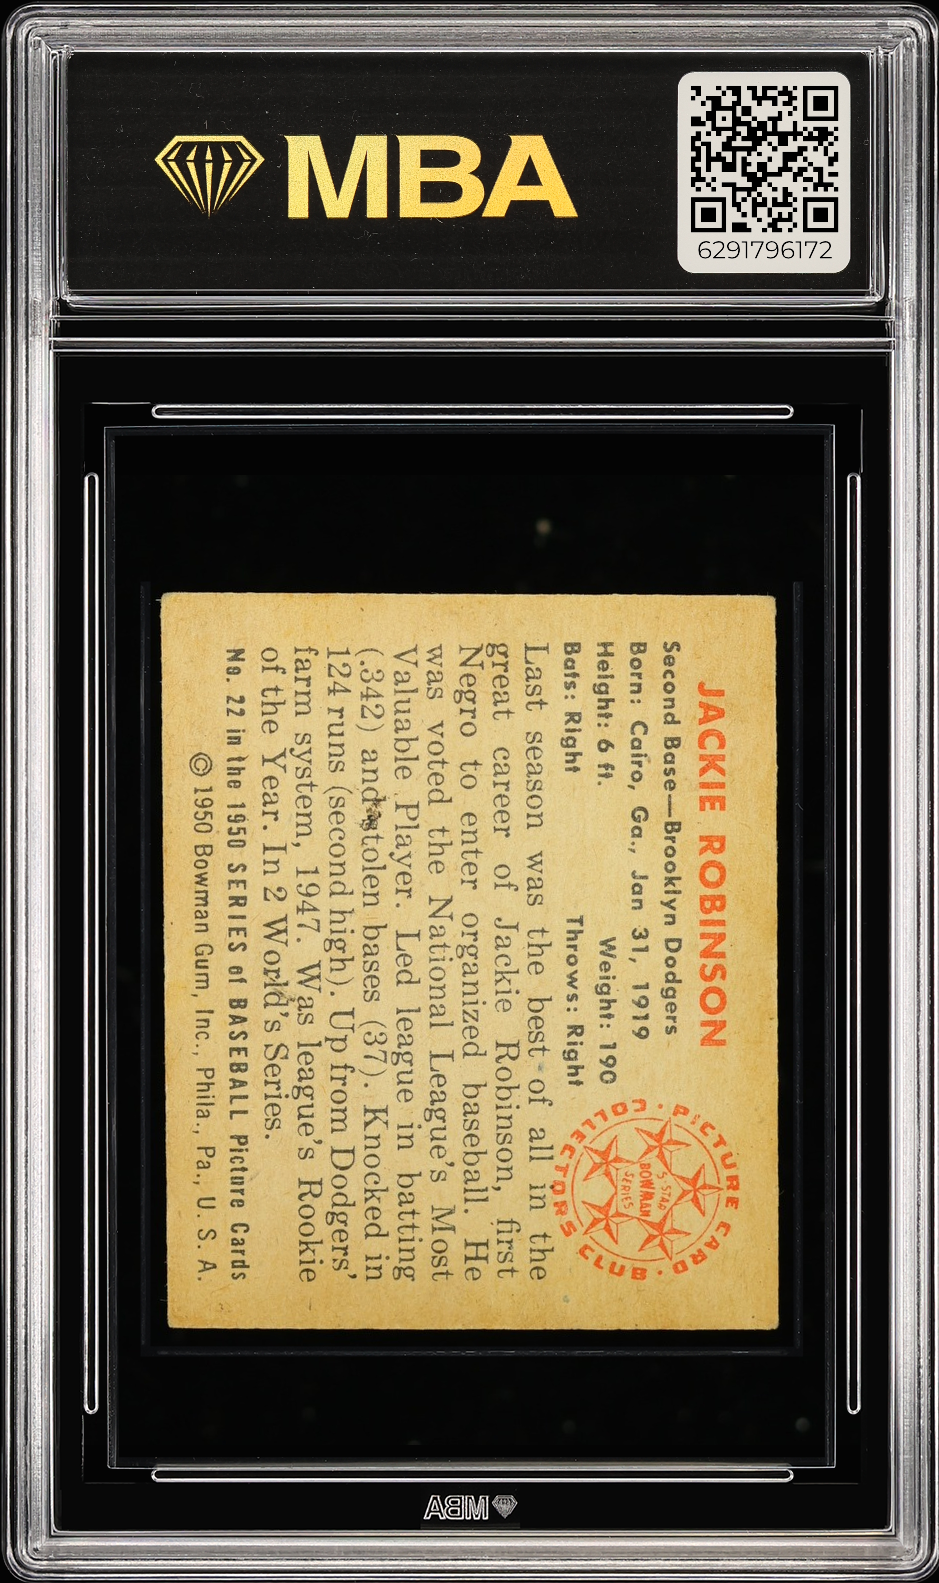 MBA
6291796172
JACKIE ROBINSON
Second Base—Brooklyn Dodgers
Born: Cairo, Ga., Jan 31, 1919
Height: 6 ft. Weight: 190
Bats: Right Throws: Right
PICTURE CARD · COLLECTORS CLUB ·
5-STAR
BOWMAN
SERIES
Last season was the best of all in the
great career of Jackie Robinson, first
Negro to enter organized baseball. He
was voted the National League's Most
Valuable Player. Led league in batting
(.342) and stolen bases (37). Knocked in
124 runs (second high). Up from Dodgers'
farm system, 1947. Was league's Rookie
of the Year. In 2 World's Series.
No. 22 in the 1950 SERIES of BASEBALL Picture Cards
© 1950 Bowman Gum, Inc., Phila., Pa., U. S. A.
MBA